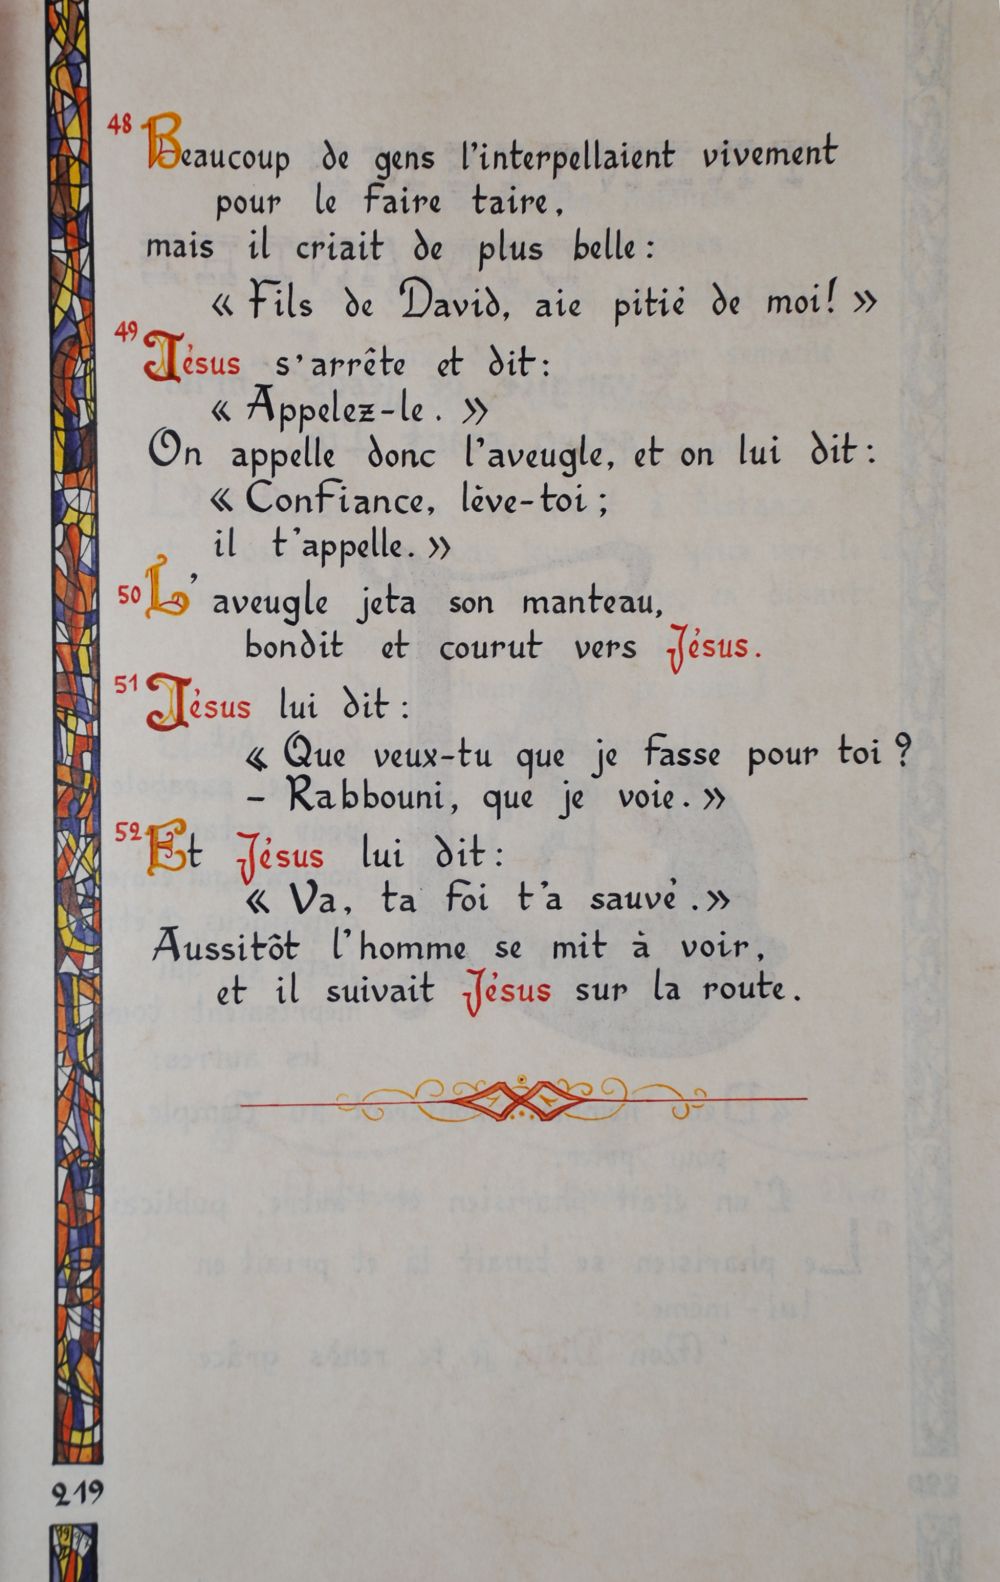 48 Beaucoup de gens l'interpellaient vivement
pour le faire taire,
mais il criait de plus belle :
« Fils de David, aie pitié de moi! »
49 Jésus s'arrête et dit :
« Appelez-le. »
On appelle donc l'aveugle, et on lui dit :
« Confiance, lève-toi ;
il t'appelle. »
50 L'aveugle jeta son manteau,
bondit et courut vers Jésus.
51 Jésus lui dit :
« Que veux-tu que je fasse pour toi ?
– Rabbouni, que je voie. »
52 Et Jésus lui dit :
« Va, ta foi t'a sauvé. »
Aussitôt l'homme se mit à voir,
et il suivait Jésus sur la route.
219